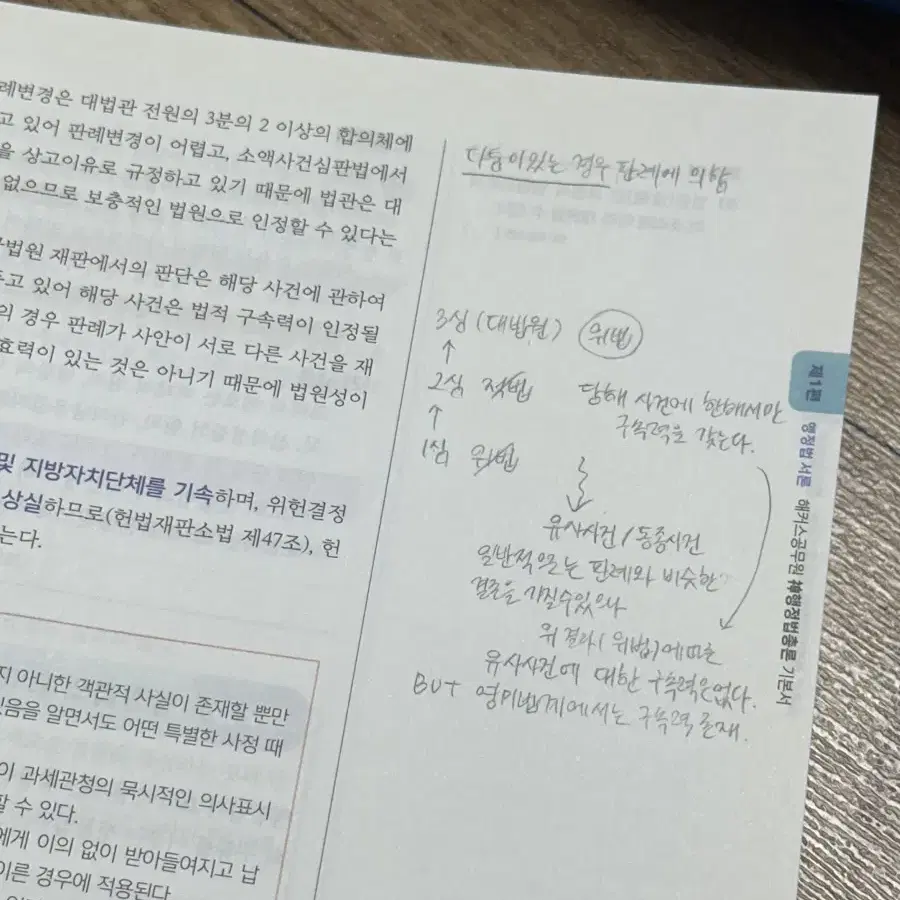 례변경은 대법관 전원의 3분의 2 이상의 합의체에
고 있어 판례변경이 어렵고, 소액사건심판법에서
을 상고이유로 규정하고 있기 때문에 법관은 대
없으므로 보충적인 법원으로 인정할 수 있다는
법원 재판에서의 판단은 해당 사건에 관하여
두고 있어 해당 사건은 법적 구속력이 인정될
의 경우 판례가 사안이 서로 다른 사건을 재
효력이 있는 것은 아니기 때문에 법원성이
및 지방자치단체를 기속하며, 위헌결정
상실하므로(헌법재판소법 제47조), 헌
는다.
지 아니한 객관적 사실이 존재할 뿐만
있음을 알면서도 어떤 특별한 사정 때
이 과세관청의 묵시적인 의사표시
할 수 있다.
에게 이의 없이 받아들여지고 납
이른 경우에 적용된다
다툼이 있는 경우 판례에 의함
3심 (대법원) 위법
↑
2심 적법
↑
1심 위법
당해 사건에 한해서만
구속력을 갖는다.
유사사건 / 동종사건
일반적으로는 판례와 비슷한
결론을 가질수있으나
위 결과(위법)에 따른
유사사건에 대한 구속력은 없다.
BUT 영미법계에서는 구속력 존재.
제1편
행정법 서론
해커스공무원 神행정법총론 기본서